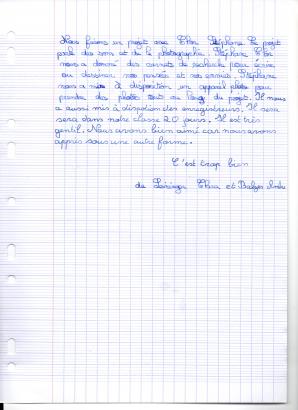 Nous faisons un projet avec Thor Stéphane Le projet
parle des sons et de la photographie. Stéphane Thor
nous a donné des carnets de recherche pour écrire
ou dessiner nos pensées et nos envies. Stéphane
nous a mis à disposition un appareil photo pour
prendre des photos tout au long du projet. Il nous
a aussi mis à disposition des enregistreurs. Il sera
sera dans notre classe 20 jours. Il est très
gentil. Nous avons bien aimé car nous avons
appris sous une autre forme.
C'est trop bien
de et